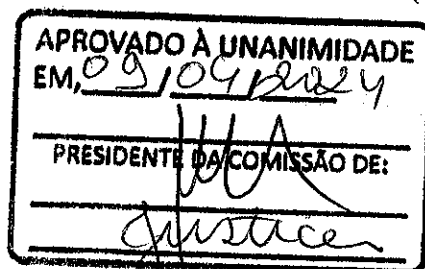 APROVADO À UNANIMIDADE
EM, 09/04/2024
PRESIDENTE DA COMISSÃO DE:
Justiça